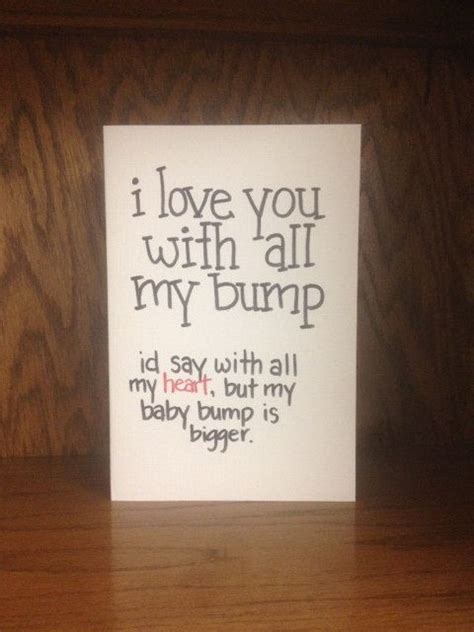 i love you
with all
my bump
id say with all
my heart, but my
baby bump is
bigger.